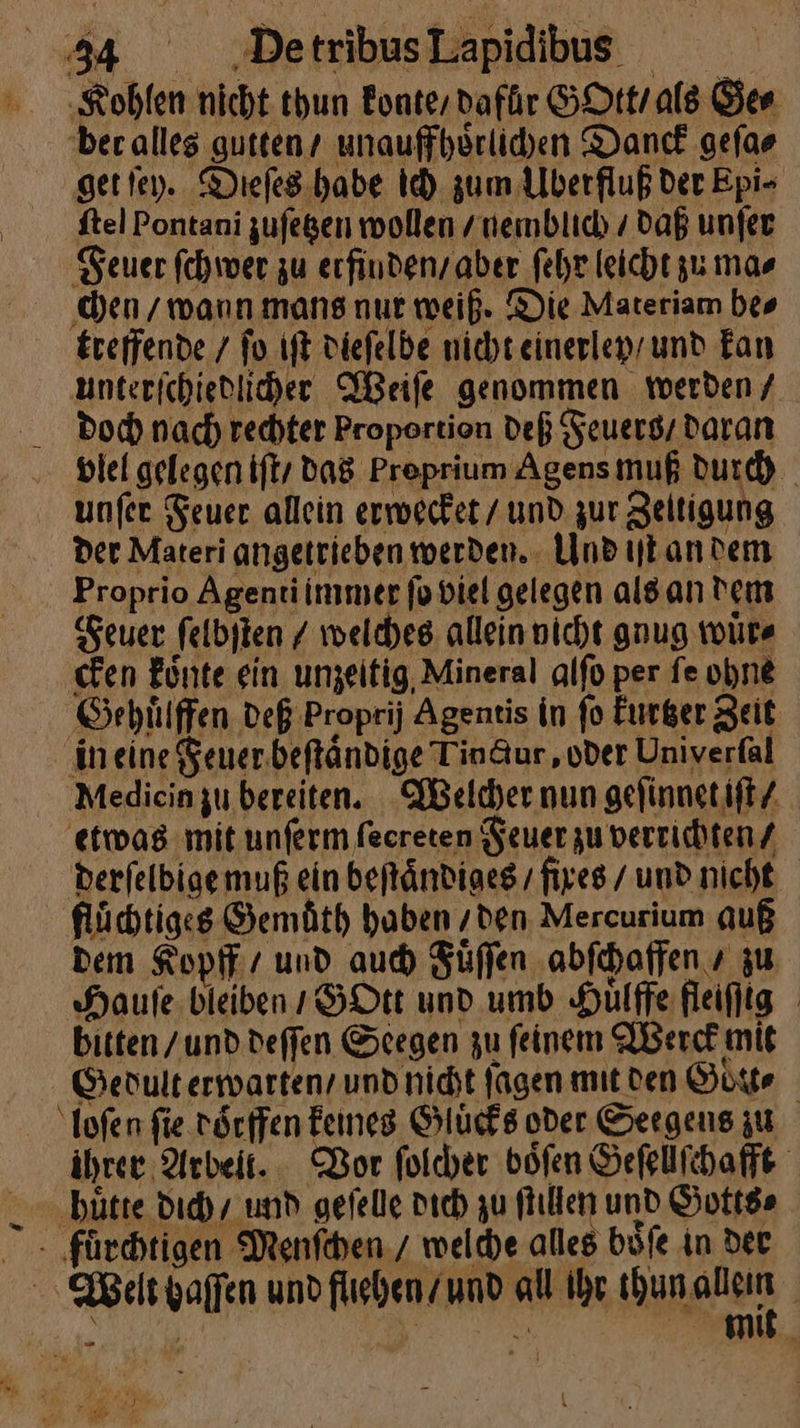 34 De tribus Lapidibus
Kohlen nicht thun konte/ dafůr GOtt/ als Ge⸗
ber alles gutten / unauffhoͤrlichen Danck geſa⸗
get ſey. Dieſes habe ich zum Uberfluß der Epi-
ſtel Pontani zuſetzen wollen / nemblich / daß unſer
Feuer ſchwer zu erfinden/ aber ſehr leicht zu ma⸗
chen / wann mans nur weiß. Die Materiam be⸗
treffende / ſo iſt dieſelbe nicht einerley/ und kan
unterſchiedlicher Weiſe genommen werden /
doch nach rechter Proportion deß Feuers/ daran
viel gelegen iſt/ das Proprium Agens muß durch
unſer Feuer allein erwecket / und zur Zeitigung
der Materi angetrieben werden. Und iſt an dem
Proprio Agenti immer ſo viel gelegen als an dem
Feuer ſelbſten / welches allein nicht gnug wuͤr⸗
cken koͤnte ein unzeitig Mineral alſo per ſe ohne
Gehuͤlffen deß Proprij Agentis in ſo kurtzer Zeit
in eine Feuer beſtaͤndige Tinctur, oder Univerſal
Medicin zu bereiten. Welcher nun geſinnet iſt /
etwas mit unſerm ſecreten Feuer zu verrichten /
derſelbige muß ein beſtaͤndiges / fixes / und nicht
fluͤchtiges Gemuͤth haben / den Mercurium auß
dem Kopff / und auch Fuͤſſen abſchaffen / zu
Hauſe bleiben / GOtt und umb Huͤlffe fleiſſig
bitten / und deſſen Seegen zu ſeinem Werck mit
Gedult erwarten/ und nicht ſagen mit den Gott⸗
loſen ſie doͤrffen keines Gluͤcks oder Seegens zu
ihrer Arbeit. Vor ſolcher boͤſen Geſellſchafft
huͤtte dich / und geſelle dich zu ſtillen und Gotts⸗
fuͤrchtigen Menſchen / welche alles boͤſe in der
Welt haſſen und fliehen / und all ihr thun allein
mit